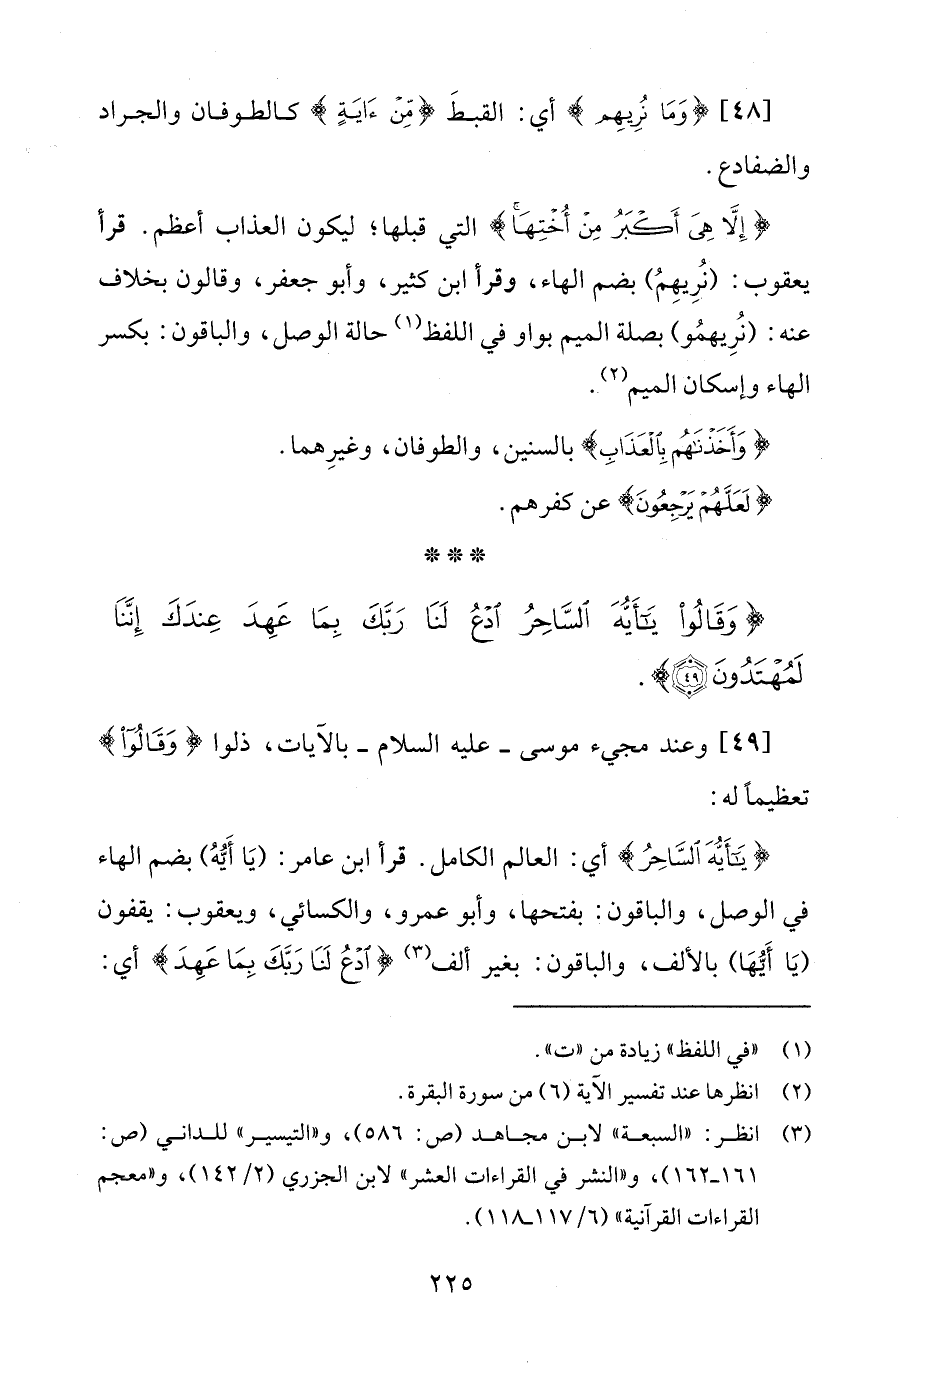 [٤٨] ﴿وَمَا نُرِيهِم﴾ أي: القبطَ ﴿مِّنْ ءَايَةٍ﴾ كالطوفان والجراد
والضفادع.
﴿إِلَّا هِيَ أَكْبَرُ مِنْ أُخْتِهَاۖ﴾ التي قبلها؛ ليكون العذاب أعظم. قرأ
يعقوب: (نُرِيهُمْ) بضم الهاء، وقرأ ابن كثير، وأبو جعفر، وقالون بخلاف
عنه: (نُرِيهِمُو) بصلة الميم بواو في اللفظ(١) حالة الوصل، والباقون: بكسر
الهاء وإسكان الميم(٢).
﴿وَأَخَذْنَٰهُم بِٱلْعَذَابِ﴾ بالسنين، والطوفان، وغيرِهما.
﴿لَعَلَّهُمْ يَرْجِعُونَ﴾ عن كفرهم.
***
﴿وَقَالُوا۟ يَٰٓأَيُّهَ ٱلسَّاحِرُ ٱدْعُ لَنَا رَبَّكَ بِمَا عَهِدَ عِندَكَ إِنَّنَا
لَمُهْتَدُونَ ۝٤٩﴾.
[٤٩] وعند مجيء موسى ـ عليه السلام ـ بالآيات، ذلوا ﴿وَقَالُوا۟﴾
تعظيماً له:
﴿يَٰٓأَيُّهَ ٱلسَّاحِرُ﴾ أي: العالم الكامل. قرأ ابن عامر: (يَا أَيُّهُ) بضم الهاء
في الوصل، والباقون: بفتحها، وأبو عمرو، والكسائي، ويعقوب: يقفون
(يَا أَيُّهَا) بالألف، والباقون: بغير ألف(٣) ﴿ٱدْعُ لَنَا رَبَّكَ بِمَا عَهِدَ﴾ أي:
(١) «في اللفظ» زيادة من «ت».
(٢) انظرها عند تفسير الآية (٦) من سورة البقرة.
(٣) انظر: «السبعة» لابن مجاهد (ص: ٥٨٦)، و«التيسير» للداني (ص:
١٦١ـ١٦٢)، و«النشر في القراءات العشر» لابن الجزري (٢/ ١٤٢)، و«معجم
القراءات القرآنية» (٦/ ١١٧ـ١١٨).
٢٢٥